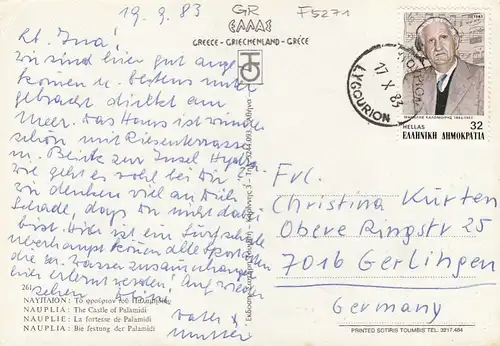 19.9.83
GR
F5271
ΕΛΛΑΣ
GREECE - GRIECHENLAND - GRECE
Lb. Ina!
Wir sind hier gut ange-
kommen u. bestens unter
gebracht direkt am
Meer. Das Haus ist wunder
schön mit Riesenterrasse
u. Blick zur Insel Hydra.
Wie geht es wohl bei Dir
wir denken viel an Dich
Schade, dass Du nicht dabei
bist. Hier ist ein
überhaupt können alle Sportarten
die m. Wasser zusammenhängen
hier erlernt werden! Auf wieder
sehen
Vater &
Mutter
261
ΝΑΥΠΛΙΟΝ: Το φρούριον του Παλαμηδίου
NAUPLIA: The Castle of Palamidi
NAUPLIE: La fortesse de Palamidi
NAUPLIA: Bie festung der Palamidi
LYGOURION
17 X 83
HELLAS 32
ΕΛΛΗΝΙΚΗ ΔΗΜΟΚΡΑΤΙΑ
Frl.
Christina Kürten
Obere Ringstr 25
7016 Gerlingen
Germany
PRINTED SOTIRIS TOUMBIS TEL. 3217.484